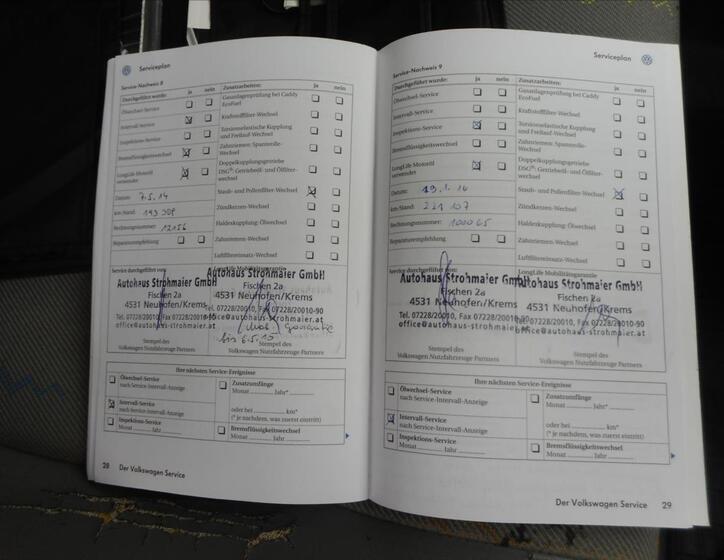 Serviceplan
Service-Nachweis 8
Durchgeführt wurde: ja nein
Ölwechsel-Service
Intervall-Service
Inspektions-Service
Bremsflüssigkeitswechsel
LongLife Motoröl
verwendet
Datum: 7.5.14
km-Stand:
Rechnungsnummer: 12156
Reparaturempfehlung
Zusatzarbeiten: ja nein
Gasanlagenprüfung bei Caddy
EcoFuel
Kraftstofffilter-Wechsel
Torsionselastische Kupplung
und Freilauf-Wechsel
Zahnriemen- Spannrolle-
Wechsel
Doppelkupplungsgetriebe
DSG®: Getriebeöl- und Ölfilter-
wechsel
Staub- und Pollenfilter-Wechsel
Zündkerzen-Wechsel
Haldexkupplung: Ölwechsel
Zahnriemen-Wechsel
Luftfiltereinsatz-Wechsel
Service durchgeführt von:
LongLife Mobilitätsgarantie
Autohaus Strohmaier GmbH
Fischen 2a
4531 Neuhofen/Krems
Tel. 07228/20010, Fax 07228/20010-90
office@autohaus-strohmaier.at
Autohaus Strohmaier GmbH
Fischen 2a
4531 Neuhofen/Krems
Tel. 07228/20010, Fax 07228/20010-90
office@autohaus-strohmaier.at
bis 6.5.15
Stempel des
Volkswagen Nutzfahrzeuge Partners
Stempel des
Volkswagen Nutzfahrzeuge Partners
Ihre nächsten Service-Ereignisse
Ölwechsel-Service
nach Service-Intervall-Anzeige
Intervall-Service
nach Service-Intervall-Anzeige
Inspektions-Service
Monat Jahr
Zusatzumfänge
Monat Jahr*
oder bei km*
(* je nachdem, was zuerst eintritt)
Bremsflüssigkeitswechsel
Monat Jahr
28 Der Volkswagen Service
Serviceplan
Service-Nachweis 9
Durchgeführt wurde: ja nein
Ölwechsel-Service
Intervall-Service
Inspektions-Service
Bremsflüssigkeitswechsel
LongLife Motoröl
verwendet
Datum: 19.1.16
km-Stand: 231 107
Rechnungsnummer: 100065
Reparaturempfehlung
Zusatzarbeiten: ja nein
Gasanlagenprüfung bei Caddy
EcoFuel
Kraftstofffilter-Wechsel
Torsionselastische Kupplung
und Freilauf-Wechsel
Zahnriemen- Spannrolle-
Wechsel
Doppelkupplungsgetriebe
DSG®: Getriebeöl- und Ölfilter-
wechsel
Staub- und Pollenfilter-Wechsel
Zündkerzen-Wechsel
Haldexkupplung: Ölwechsel
Zahnriemen-Wechsel
Luftfiltereinsatz-Wechsel
Service durchgeführt von:
LongLife Mobilitätsgarantie
Autohaus Strohmaier GmbH
Fischen 2a
4531 Neuhofen/Krems
Tel. 07228/20010, Fax 07228/20010-90
office@autohaus-strohmaier.at
Autohaus Strohmaier GmbH
Fischen 2a
4531 Neuhofen/Krems
Tel. 07228/20010, Fax 07228/20010-90
office@autohaus-strohmaier.at
Stempel des
Volkswagen Nutzfahrzeuge Partners
Stempel des
Volkswagen Nutzfahrzeuge Partners
Ihre nächsten Service-Ereignisse
Ölwechsel-Service
nach Service-Intervall-Anzeige
Intervall-Service
nach Service-Intervall-Anzeige
Inspektions-Service
Monat Jahr
Zusatzumfänge
Monat Jahr*
oder bei km*
(* je nachdem, was zuerst eintritt)
Bremsflüssigkeitswechsel
Monat Jahr
Der Volkswagen Service 29